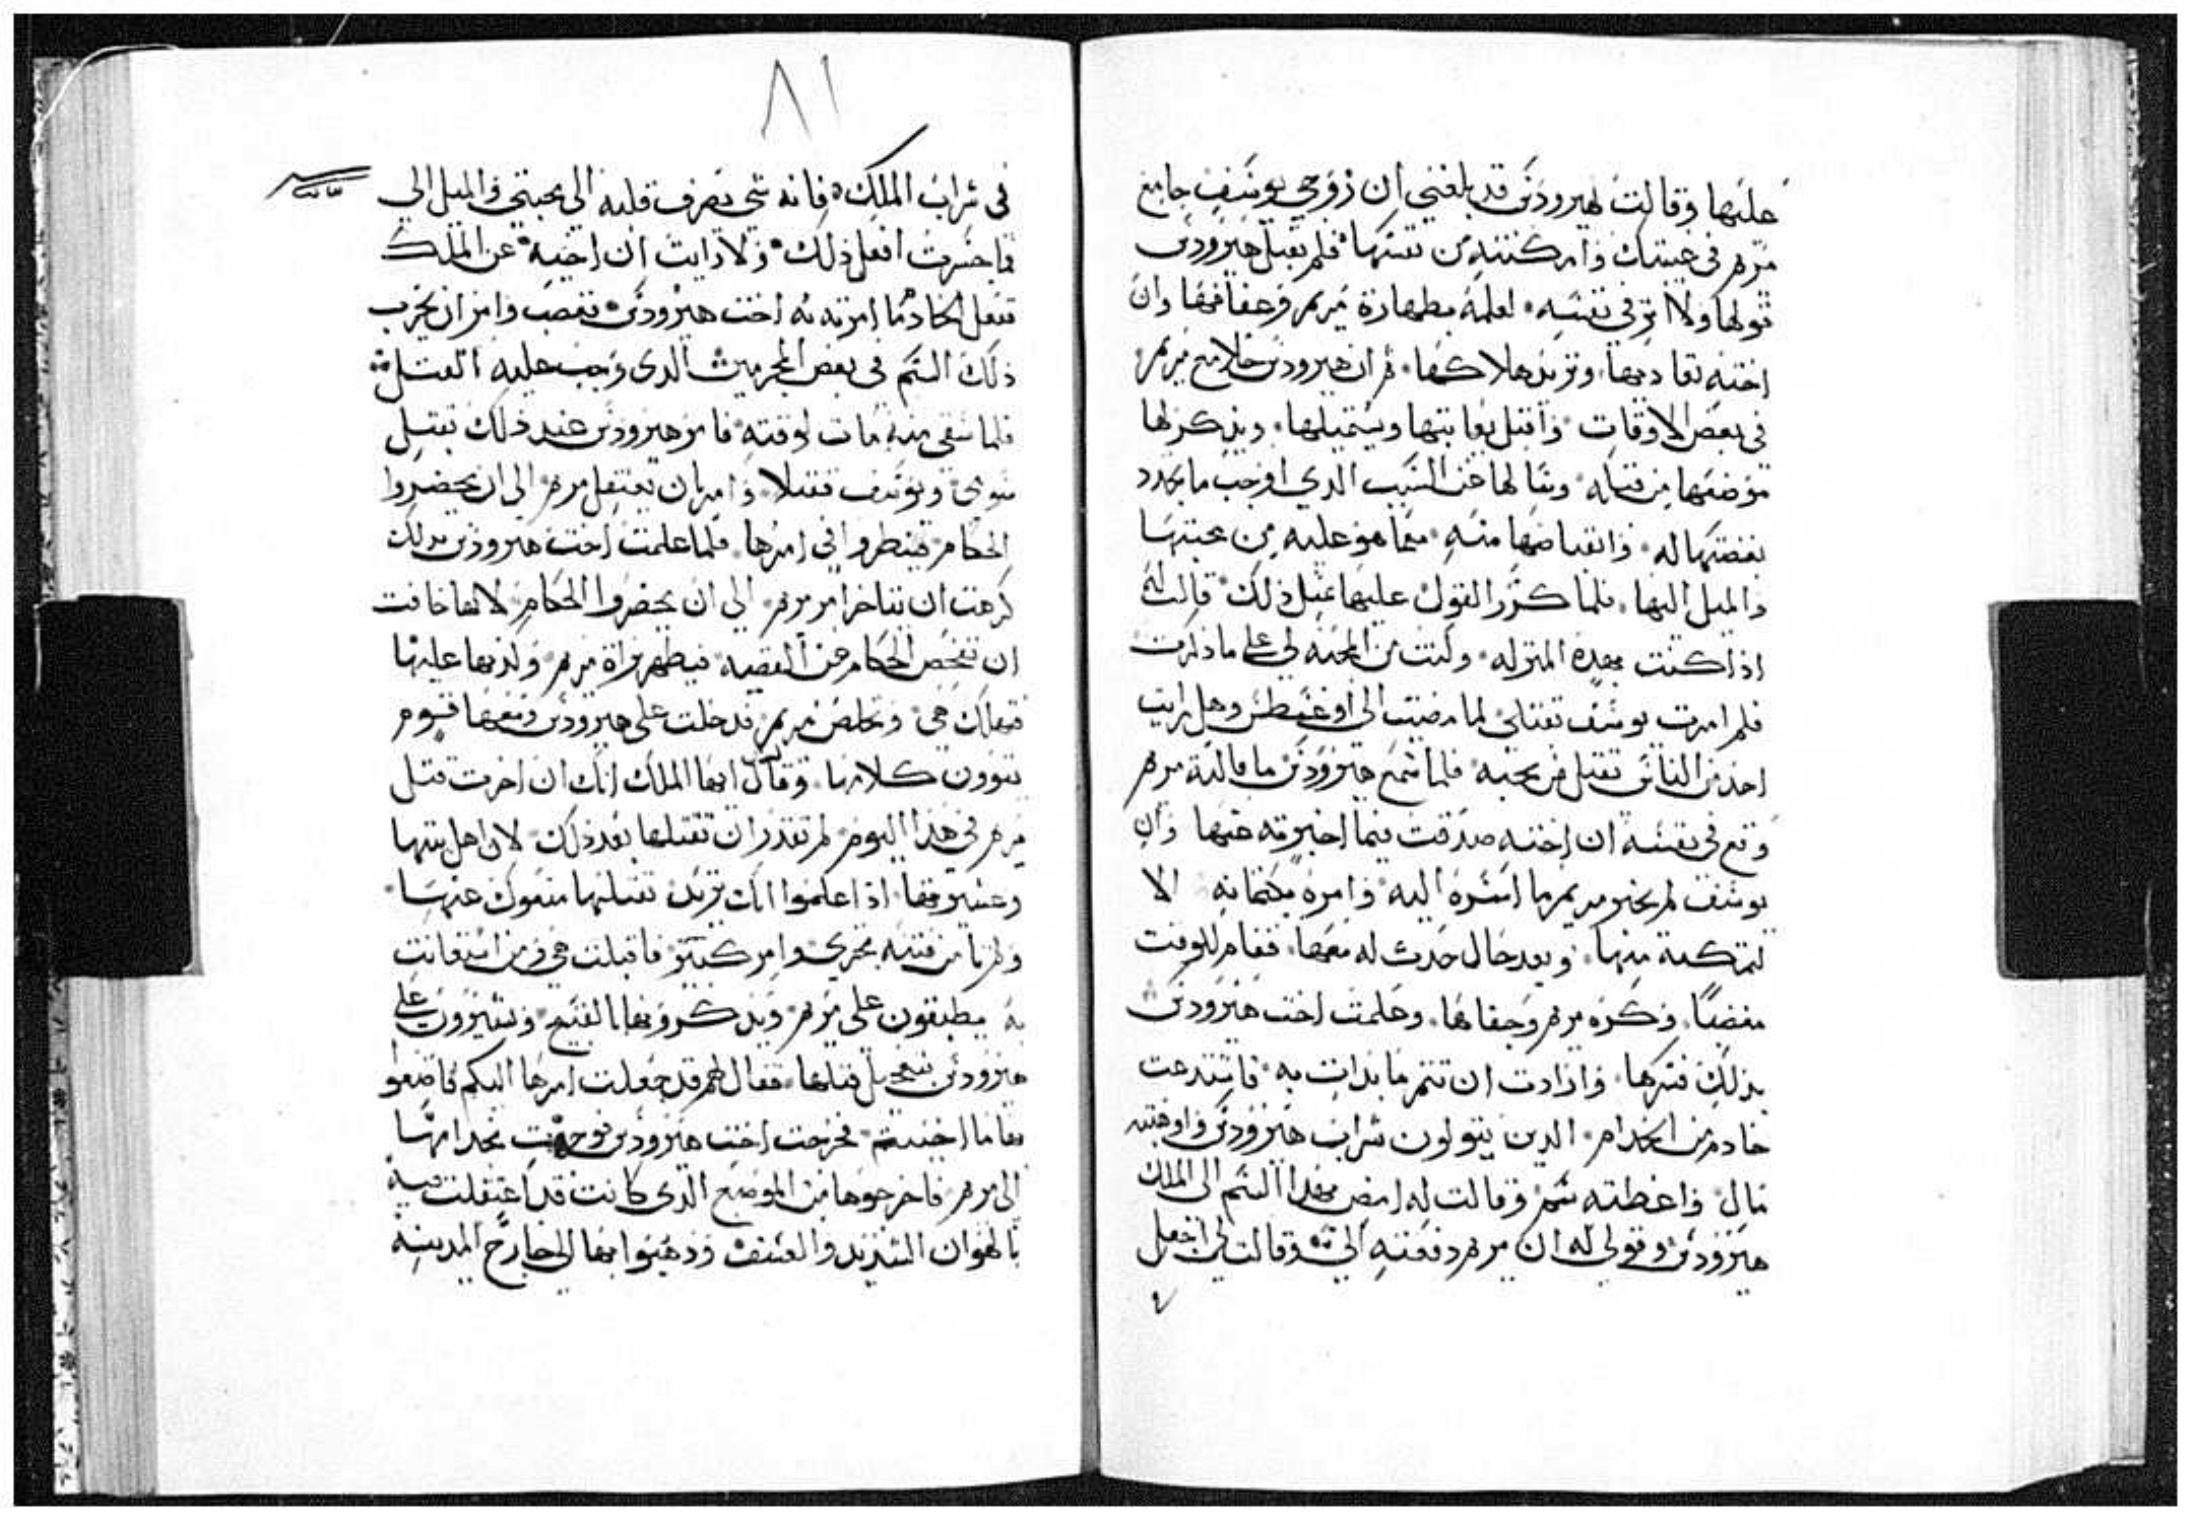 عليها وقالت لهيرودس قد بلغني ان زوجي يوسف جامع
مريم في غيبتك وامكنته من نفسها فلم يقبل هيرودس
قولها ولا اثر في نفسه لعلمه بطهارة مريم وعفافها وان
اخته تعاديها وتريد هلاكها ثم ان هيرودس خلا مع مريم
في بعض الاوقات واقبل يعاتبها ويستميلها ويذكر لها
موضعها من قلبه وسالها عن السبب الذي اوجب ما تجدد
بغضتها له وانقباضها منه معما هو عليه من محبتها
والميل اليها فلما كرر القول عليها بمثل ذلك قالت له
اذا كنت بهذه المنزله وكنت من المحبه لي على ما ذكرت
فلم امرت يوسف بقتلي لما مضيت الى اوغسطس وهل رايت
احد من الناس يقتل من يحبه فلما سمع هيرودس ما قالته مريم
وقع في نفسه ان اخته صدقت فيما اخبرته عنها وان
يوسف لم يخبر مريم بما اسره اليه وامره بكتمانه الا
لتمكنه منها وبعد حال حدث له معها فقام للوقت
مغضبا وكره مريم وجفاها وعلمت اخت هيرودس
بذلك فسرها وارادت ان تتم ما بدات به فاستدعت
خادم من الخدام الذين يتولون شراب هيرودس واوهبته
مال واعطته سم وقالت له امض بهذا السم الى الملك
هيرودس وقول له ان مريم دفعته الي وقالت لي اجعل
٨١
في شراب الملك فانه شي يصرف قلبه الى محبتي والميل الي
فما جسرت افعل ذلك ولا رايت ان اخفيه عن الملك
ففعل الخادم ما امرته به اخت هيرودس فغضب وامر ان يجرب
ذلك السم في بعض المجرمين الذى وجب عليه القتل
فلما سقى منه مات لوقته فامر هيرودس عند ذلك بقتل
ويوسف فقتلا وامر بان تعتقل مريم الى ان يحضروا
الحكام فينظروا في امرها فلما علمت اخت هيرودس بذلك
كرهت ان يتاخر امر مريم الى ان يحضروا الحكام لانها خافت
ان تفحص الحكام عن القضيه فيظهر براة مريم وكذبها عليها
فتهلك هي وتخلص مريم فدخلت على هيرودس ومعها قوم
يقوون كلامها وقالت ايها الملك انك ان اخرت قتل
مريم في هذا اليوم لم تقدر ان تقتلها بعد ذلك لان اهل بيتها
وعشيرتها اذا علموا انك تريد تقتلها منعوك عنها
من فتنه تجري وامر كبير فاقبلت هي ومن استعانت
به يطبقون على مريم ويذكرونها بالقبيح ويشيرون على
هيرودس بتعجيل قتلها فقال لهم قد جعلت امرها اليكم فاصنعوا
بها ما احببتم فخرجت اخت هيرودس ووجهت بخدامها
الى مريم فاخرجوها من الموضع الذى كانت قد اعتقلت فيه
بالهوان الشديد والعسف وذهبوا بها الى خارج المدينه